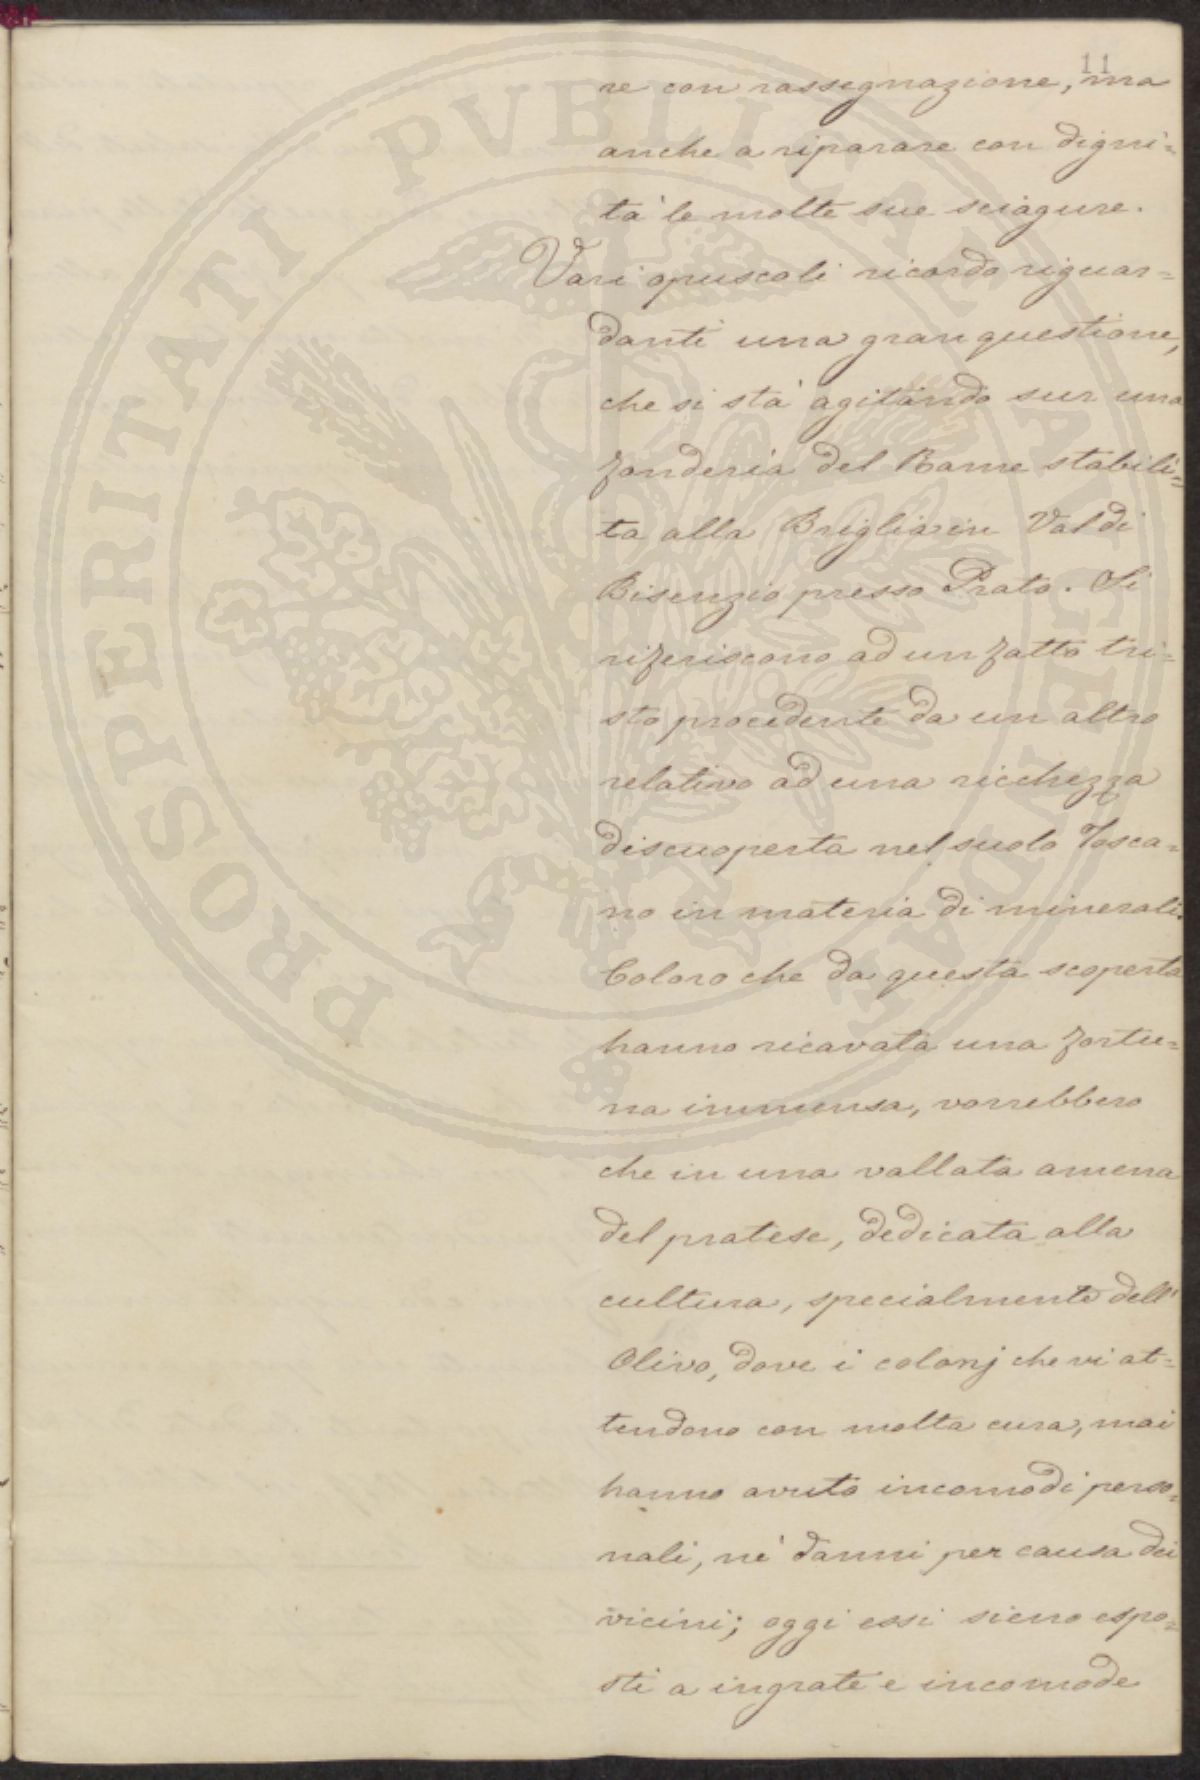 11
re con rassegnazione, ma
anche a riparare con digni=
tà le molte sue sciagure.
Vari opuscoli ricordo riguar=
danti una gran questione,
che si stà agitando sur una
fonderia del Rame stabili=
ta alla Briglia in Val di
Bisenzio presso Prato. Si
riferiscono ad un fatto tri=
sto procedente da un altro
relativo ad una ricchezza
discuoperta nel suolo Tosca=
no in materia di minerali.
Coloro che da questa scoperta
hanno ricavata una fortu=
na immensa, vorrebbero
che in una vallata amena
del pratese, dedicata alla
cultura, specialmente dell'
Olivo, dove i colonj che vi at=
tendono con molta cura, mai
hanno avuto incomodi perso=
nali, nè danni per causa dei
vicini; oggi essi sieno espo=
sti a ingrate e incomode
PROSPERITATI PVBLICAE AVGENDAE